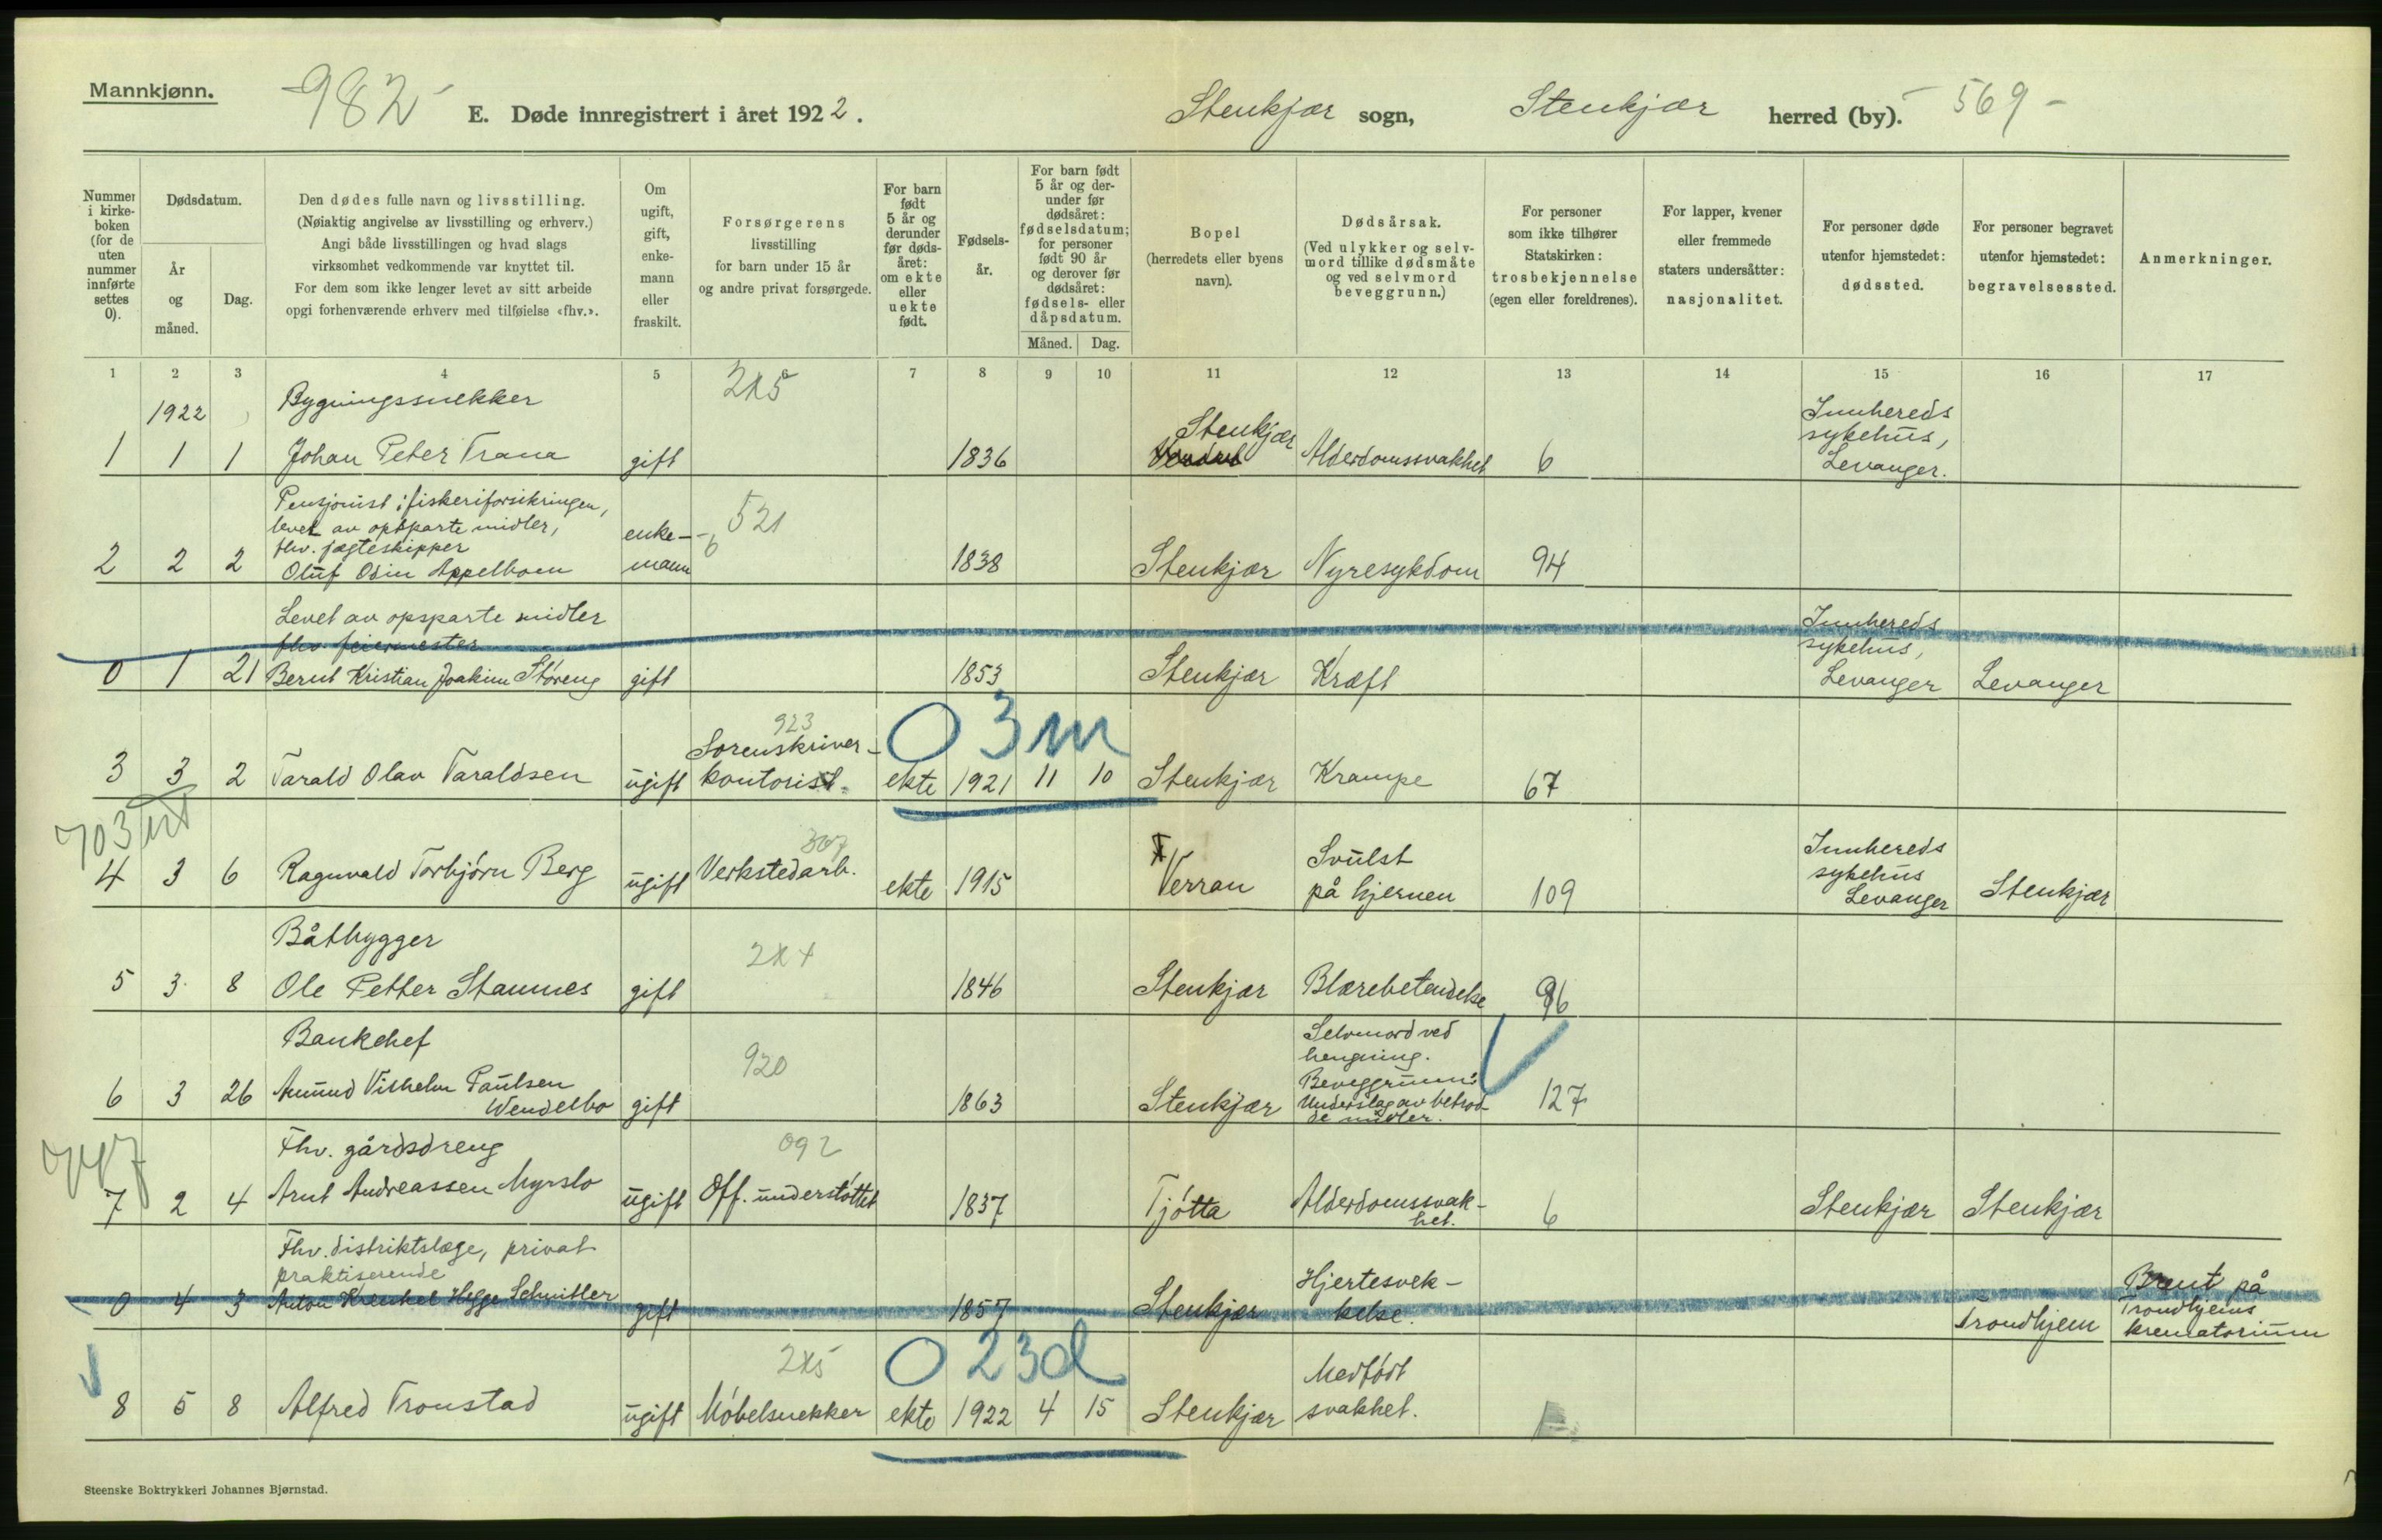 Mannkjønn.
982
E. Døde innregistrert i året 1922.
Stenkjær sogn, Stenkjær herred (by). - 569 -
Nummer i kirkeboken (for de uten nummer innførte settes 0).
Dødsdatum.
År og måned.
Dag.
Den dødes fulle navn og livsstilling.
(Nøiaktig angivelse av livsstilling og erhverv.)
Angi både livsstillingen og hvad slags
virksomhet vedkommende var knyttet til.
For dem som ikke lenger levet av sitt arbeide
opgi forhenværende erhverv med tilføielse «fhv.».
Om ugift, gift, enkemann eller fraskilt.
Forsørgerens
livsstilling
for barn under 15 år
og andre privat forsørgede.
For barn født 5 år og derunder før dødsåret: om ekte eller uekte født.
Fødselsår.
For barn født 5 år og derunder før dødsåret: fødselsdatum; for personer født 90 år og derover før dødsåret: fødsels- eller dåpsdatum.
Måned. Dag.
Bopel
(herredets eller byens
navn).
Dødsårsak.
(Ved ulykker og selvmord tillike dødsmåte og ved selvmord beveggrunn.)
For personer
som ikke tilhører
Statskirken:
trosbekjennelse
(egen eller foreldrenes).
For lapper, kvener
eller fremmede
staters undersåtter:
nasjonalitet.
For personer døde
utenfor hjemstedet:
dødssted.
For personer begravet
utenfor hjemstedet:
begravelsessted.
Anmerkninger.
1 2 3 4 5 6 7 8 9 10 11 12 13 14 15 16 17
1922
Bygningssnekker
1 1 1 Johan Peter Trana gift 1836 Stenkjær Alderdomssvakhet 6 Innhereds sykehus, Levanger.
Pensjonist i fiskeriforsikringen,
levet av opsparte midler,
fhv. jægteskipper
2 2 2 Oluf Odin Appelboen enkemann 521 1838 Stenkjær Nyresykdom 94
Levet av opsparte midler
fhv. feiermester
0 1 21 Bernt Kristian Joakim Støreng gift 1853 Stenkjær Kræft Innhereds sykehus, Levanger Levanger
923
0 3m
3 3 2 Tarald Olav Taraldsen ugift Sorenskriverkontorist. ekte 1921 11 10 Stenkjær Krampe 67
703
4 3 6 Ragnvald Torbjørn Berg ugift Verkstedarb. ekte 1915 Verran Svulst på hjernen 109 Innhereds sykehus Levanger Stenkjær
Båtbygger
5 3 8 Ole Petter Stamnes gift 1846 Stenkjær Blærebetendelse 96
Bankchef
6 3 26 Amund Vilhelm Paulsen Wendelbo gift 920 1863 Stenkjær Selvmord ved hengning. Beveggrunn: Underslag av betrodde midler. 127
747
Fhv. gårdsdreng
092
7 2 4 Arnt Andreassen Myrslo ugift Off. understøttet 1837 Tjøtta Alderdomssvakhet. 6 Stenkjær Stenkjær
Fhv. distriktslæge, privat
praktiserende
0 4 3 Anton Krenkel Hegge Schnitler gift 1857 Stenkjær Hjertesvekkelse. Trondhjem Brent på Trondhjems krematorium
0 23d
8 5 8 Alfred Tronstad ugift Møbelsnekker ekte 1922 4 15 Stenkjær Medfødt svakhet.
Steenske Boktrykkeri Johannes Bjørnstad.